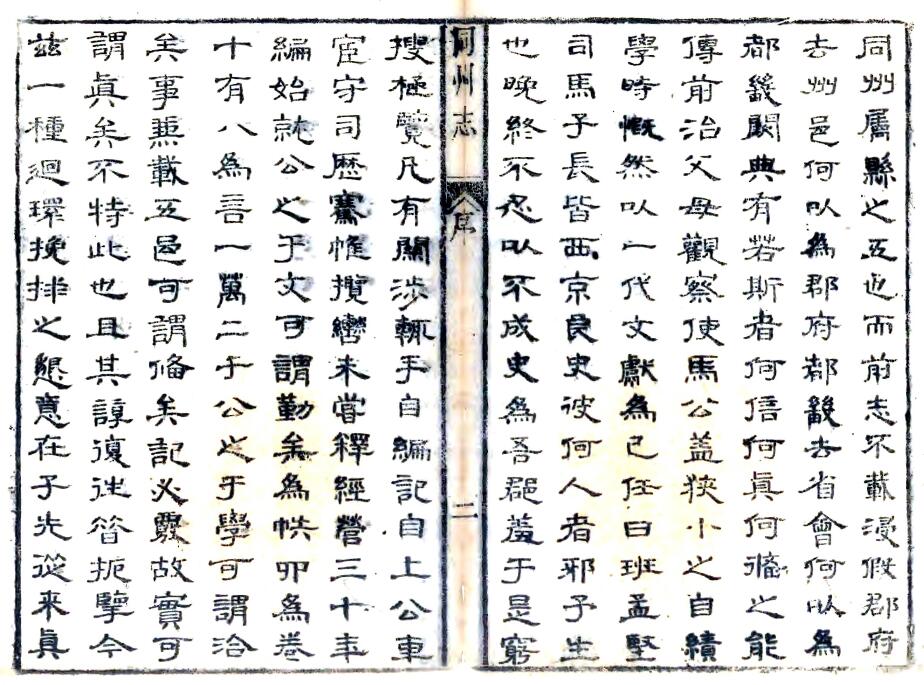 同州屬縣之五也而前志不載浸假郡府
去州邑何以爲郡府都畿去省會何以爲
都畿闕典有若斯者何信何眞何備之能
傳前治父母觀察使馬公蓋狹小之自績
學時慨然以一代文獻爲己任曰班孟堅
司馬子長皆西京良史彼何人者邪予生
也晚終不忍以不成史爲吾郡羞于是窮
同州志 序 二
搜極覽凡有關涉輒手自編記自上公車
宦守司歷騫帷攬轡未嘗釋經營三十年
編始就公之于文可謂勤矣爲帙爲卷
十有八爲言一萬二千公之于學可謂洽
矣事兼載五邑可謂備矣記必覈故實可
謂眞矣不特此也且其諄復徃昔扼今
茲一種迴環挽排之懇意在予先從來眞